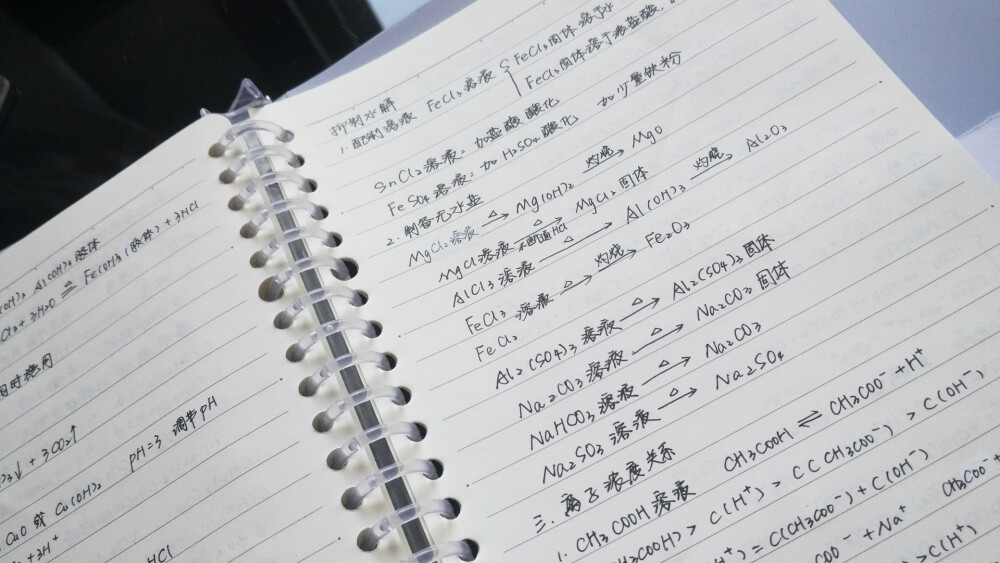 Al(OH)3胶体
Cl3+3H2O ⇌ Fe(OH)3(胶体)+3HCl
同时施用
↓ + 3CO2↑
pH=3 调节pH
CuO 或 Cu(OH)2
+3H⁺
HCl
抑制水解
1. 配制溶液 FeCl3溶液 { FeCl3固体溶于水
FeCl3固体溶于浓盐酸,
SnCl2溶液: 加盐酸酸化
FeSO4溶液: 加H2SO4酸化 加少量铁粉
2. 制备无水盐
MgCl2溶液 △→ Mg(OH)2 灼烧→ MgO
MgCl2溶液 △ 不断通HCl→ MgCl2固体
AlCl3溶液 △→ Al(OH)3 灼烧→ Al2O3
FeCl3溶液 △→ 灼烧→ Fe2O3
FeCl2
Al2(SO4)3溶液 △→ Al2(SO4)3固体
Na2CO3溶液 △→ Na2CO3固体
NaHCO3溶液 △→ Na2CO3
Na2SO3溶液 △→ Na2SO4
三. 离子浓度关系
1. CH3COOH溶液 CH3COOH ⇌ CH3COO⁻+H⁺
C(H⁺) > C(CH3COO⁻) > C(OH⁻)
= C(CH3COO⁻)+C(OH⁻)
COO⁻+Na⁺ CH3COO⁻+
>C(H⁺)